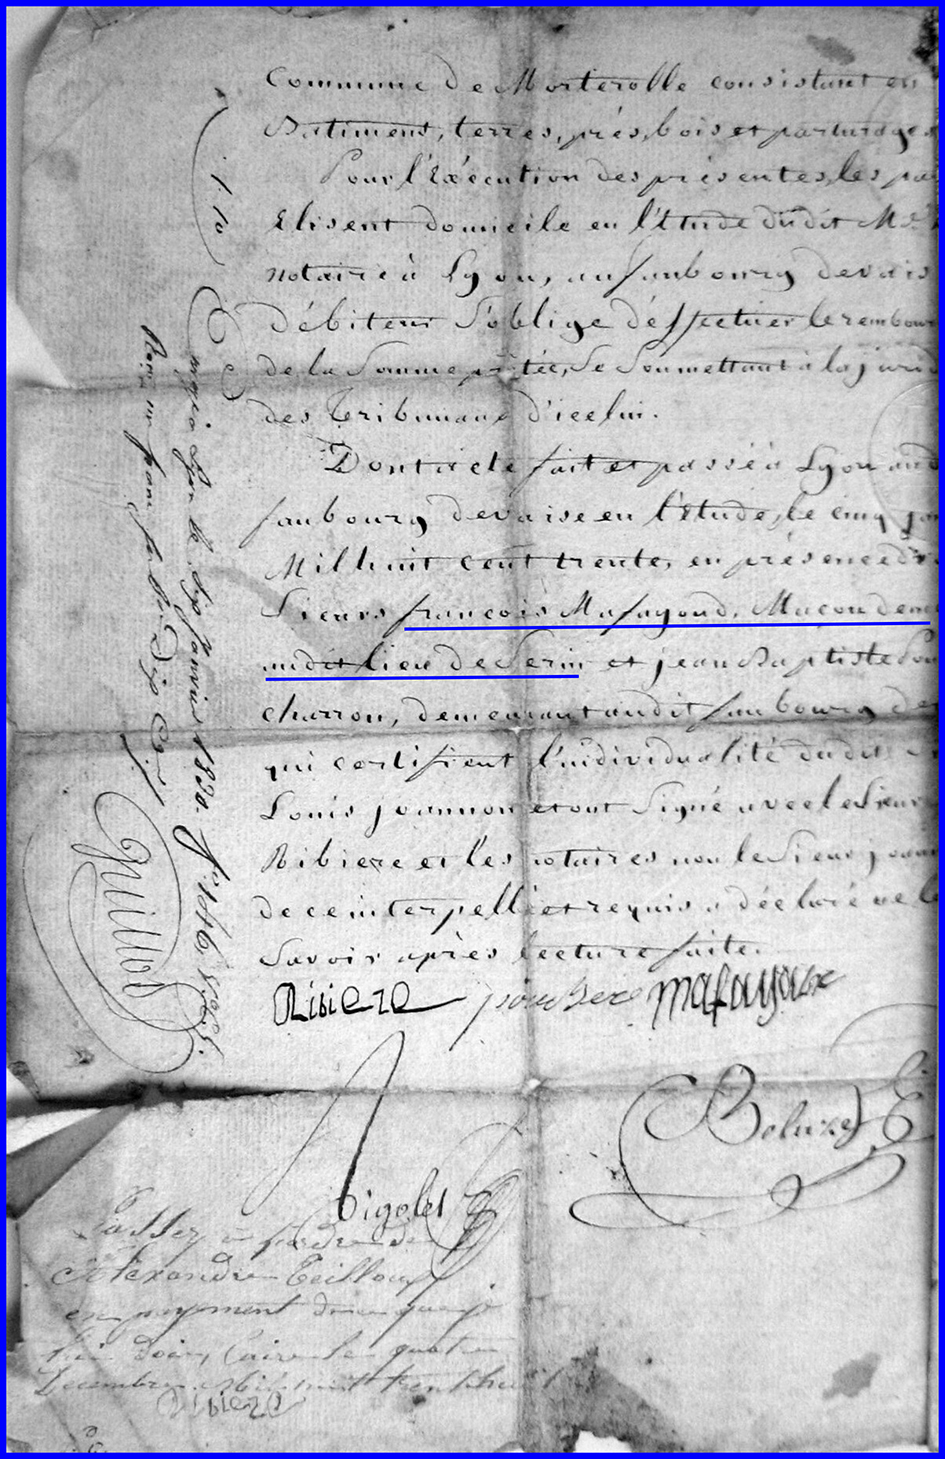 Commune de Morterolle consistant en
Batiment, terres, prés, bois et parturages
Pour l'Exécution des présentes, les pa
Elisent domicile en l'Etude dudit Me
notaire à Lyon, au faubourg devais
débiteur s'oblige d'effectuer le rembour
de la Somme prêtée, Se Soumettant à la juri
des Tribunaux d'icelui.
Dont acte fait et passé à Lyon aud
faubourg de vaise en l'étude, le cinq jan
Mil huit cent trente, en présence d
Sieurs françois Mafayoud, Macon deme
audit lieu de Serin et jean Baptiste
charron, demeurant audit faubourg de
qui certifient l'individualité dudit
Louis joannon et ont Signé avec le Sieur
Ribiere et les notaires non le Sieur joann
de ce interpellé et requis a déclaré ne le
Savoir après lecture faite.
Ribiere mafayoux
Boluze
Passez à l'ordre de
Alexandre Teilloux
en payment
quatre
Decembre mil huit trente huit
Ribiere
1.10
à Lyon le Six janvier 1830.
un franc